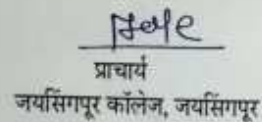 प्राचार्य
जयसिंगपूर कॉलेज, जयसिंगपूर